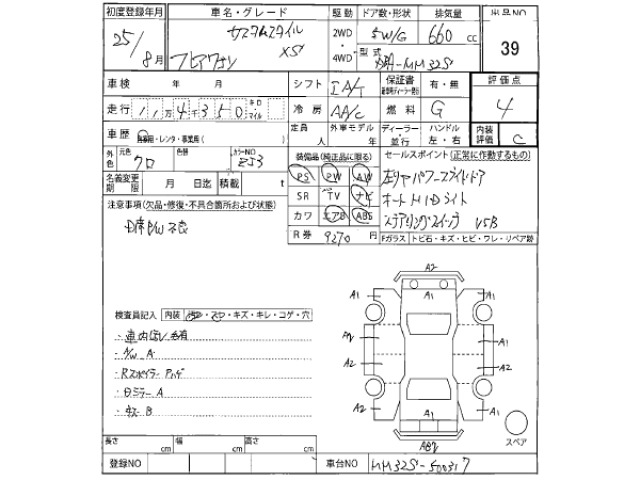 初度登録年月 車名・グレード 駆動 ドア数・形状 排気量 出品NO
25/8月 カスタムスタイル XS 2WD・4WD 5W/G 660cc 39
フレアワゴン 型式 MM32S
車検 年 月 シフト IA/T 保証書 有・無 評価点
走行 11万4千350キロ マイル 冷房 AA/C 燃料 G 4
車歴 自家用・レンタ・事業用( ) 定員 人 外車モデル 年 ディーラー・並行 ハンドル 左・右 内装評価 C
外色 元色 クロ 色替 カラーNO ZJ3 装備品(純正品に限る) セールスポイント(正常に作動するもの)
名義変更期限 月 日迄 積載 t PS PW AW 左リヤパワースライドドア
SR TV ナビ オートHIDライト
注意事項(欠品・修復・不具合箇所および状態) カワ エアB ABS ステアリングスイッチ VSB
R券 9270円 Fガラス トビ石・キズ・ヒビ・ワレ・リペア跡
A2
A1 A1
検査員記入 内装 ・キズ・キレ・コゲ・穴
A2 A1
・A/W A
A2 A2
・Rスポイラー Pハゲ
・Dミラー A
A2 A1
・キズ B
スペア
長さ cm 幅 cm 高さ cm
登録NO 車台NO MM32S-500317